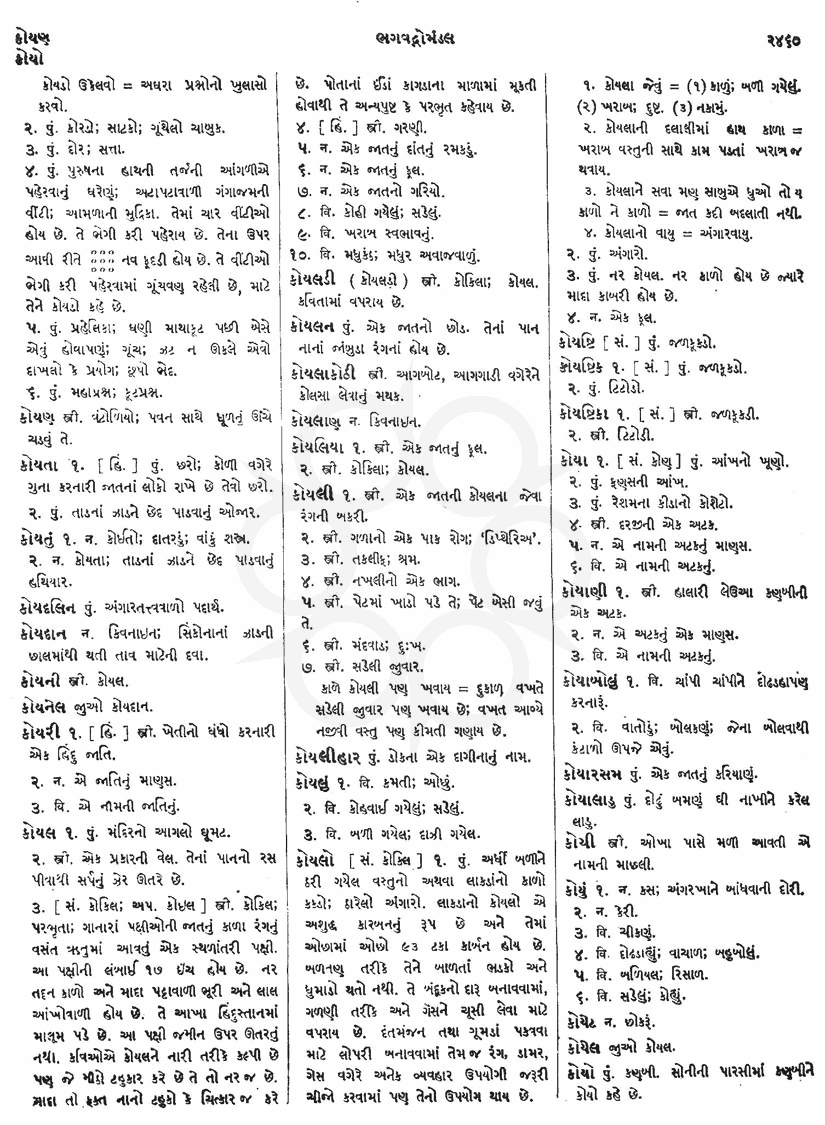 કોયણ
કોયો
ભગવદ્ગોમંડલ
૨૪૬૦
કોયડો ઉકેલવો = અઘરા પ્રશ્નોનો ખુલાસો
કરવો.
૨. પું. કોરડો; સાટકો; ગૂંથેલો ચાબુક.
૩. પું. દોર; સત્તા.
૪. પું. પુરુષના હાથની તર્જની આંગળીએ
પહેરવાનું ઘરેણું; અટાપટાવાળી ગંગાજમની
વીંટી; આમળાની મુદ્રિકા. તેમાં ચાર વીંટીઓ
હોય છે. તે ભેગી કરી પહેરાય છે. તેના ઉપર
આવી રીતે નવ ફૂદડી હોય છે. તે વીંટીઓ
ભેગી કરી પહેરવામાં ગૂંચવણ રહેલી છે, માટે
તેને કોયડો કહે છે.
૫. પું. પ્રહેલિકા; ઘણી માથાકૂટ પછી બેસે
એવું હોવાપણું; ગૂંચ; ઝટ ન ઊકલે એવો
દાખલો કે પ્રયોગ; છૂપો ભેદ.
૬. પું. મહાપ્રશ્ન; કૂટપ્રશ્ન.
કોયણ સ્ત્રી. વંટોળિયો; પવન સાથે ધૂળનું ઊંચે
ચડવું તે.
કોયતા ૧. [ હિં. ] પું. છરો; કોળી વગેરે
ગુના કરનારી જાતનાં લોકો રાખે છે તેવો છરો.
૨. પું. તાડનાં ઝાડને છેદ પાડવાનું ઓજાર.
કોયતું ૧. ન. કોઈતો; દાતરડું; વાંકું શસ્ત્ર.
૨. ન. કોયતા; તાડનાં ઝાડને છેદ પાડવાનું
હથિયાર.
કોયદલિન પું. અંગારતત્ત્વવાળો પદાર્થ.
કોયદાન ન. ક્વિનાઇન; સિંકોનાનાં ઝાડની
છાલમાંથી થતી તાવ માટેની દવા.
કોયની સ્ત્રી. કોયલ.
કોયનેલ જુઓ કોયદાન.
કોયરી ૧. [ હિં. ] સ્ત્રી. ખેતીનો ધંધો કરનારી
એક હિંદુ જાતિ.
૨. ન. એ જાતિનું માણસ.
૩. વિ. એ નામની જાતિનું.
કોયલ ૧. પું. મંદિરનો આગલો ઘૂમટ.
૨. સ્ત્રી. એક પ્રકારની વેલ. તેનાં પાનનો રસ
પીવાથી સર્પનું ઝેર ઊતરે છે.
૩. [ સં. કોકિલ; અપ. કોઇલ ] સ્ત્રી. કોકિલ;
પરભૃતા; ગાનારાં પક્ષીઓની જાતનું કાળા રંગનું
વસંત ઋતુમાં આવતું એક સ્થળાંતરી પક્ષી.
આ પક્ષીની લંબાઈ ૧૭ ઇંચ હોય છે. નર
તદ્દન કાળો અને માદા પટ્ટાવાળી ભૂરી અને લાલ
આંખોવાળી હોય છે. તે આખા હિંદુસ્તાનમાં
માલૂમ પડે છે. આ પક્ષી જમીન ઉપર ઊતરતું
નથી. કવિઓએ કોયલને નારી તરીકે કલ્પી છે
પણ જે મીઠો ટહુકાર કરે છે તે તો નર જ છે.
માદા તો ફક્ત નાનો ટહુકો કે ચિત્કાર જ કરે
છે. પોતાનાં ઈંડાં કાગડાના માળામાં મૂકતી
હોવાથી તે અન્યપુષ્ટ કે પરભૃત કહેવાય છે.
૪. [ હિં. ] સ્ત્રી. ગરણી.
૫. ન. એક જાતનું દાંતનું રમકડું.
૬. ન. એક જાતનું ફૂલ.
૭. ન. એક જાતનો ગરિયો.
૮. વિ. કોહી ગયેલું; સડેલું.
૯. વિ. ખરાબ સ્વભાવનું.
૧૦. વિ. મધુકંઠ; મધુર અવાજવાળું.
કોયલડી ( કોયલડ઼ી ) સ્ત્રી. કોકિલા; કોયલ.
કવિતામાં વપરાય છે.
કોયલન પું. એક જાતનો છોડ. તેનાં પાન
નાનાં જાંબુડા રંગનાં હોય છે.
કોયલાકોઠી સ્ત્રી. આગબોટ, આગગાડી વગેરેને
કોલસા લેવાનું મથક.
કોયલાણ ન. ક્વિનાઇન.
કોયલિયા ૧. સ્ત્રી. એક જાતનું ફૂલ.
૨. સ્ત્રી. કોકિલા; કોયલ.
કોયલી ૧. સ્ત્રી. એક જાતની કોયલના જેવા
રંગની બકરી.
૨. સ્ત્રી. ગળાનો એક પાક રોગ; ‘ડિપ્થેરિઅ’.
૩. સ્ત્રી. તકલીફ; શ્રમ.
૪. સ્ત્રી. નખલીનો એક ભાગ.
૫. સ્ત્રી. પેટમાં ખાડો પડે તે; પેટ બેસી જવું
તે.
૬. સ્ત્રી. મંદવાડ; દુઃખ.
૭. સ્ત્રી. સડેલી જુવાર.
કાળે કોયલી પણ ખવાય = દુકાળ વખતે
સડેલી જુવાર પણ ખવાય છે; વખત આવ્યે
નજીવી વસ્તુ પણ કીમતી ગણાય છે.
કોયલીહાર પું. ડોકના એક દાગીનાનું નામ.
કોયલું ૧. વિ. કમતી; ઓછું.
૨. વિ. કોહવાઈ ગયેલું; સડેલું.
૩. વિ. બળી ગયેલ; દાઝી ગયેલ.
કોયલો [ સં. કોક્લિ ] ૧. પું. અર્ધી બળીને
ઠરી ગયેલ વસ્તુનો અથવા લાકડાંનો કાળો
કકડો; ઠારેલો અંગારો. લાકડાનો કોયલો એ
અશુદ્ધ કારબનનું રૂપ છે અને તેમાં
ઓછામાં ઓછો ૯૩ ટકા કાર્બન હોય છે.
બળતણ તરીકે તેને બાળતાં ભડકો અને
ધુમાડો થતો નથી. તે બંદૂકનો દારૂ બનાવવામાં,
ગળણી તરીકે અને ગૅસને ચૂસી લેવા માટે
વપરાય છે. દંતમંજન તથા ગૂમડાં પકવવા
માટે લોપરી બનાવવામાં તેમ જ રંગ, ડામર,
ગેસ વગેરે અનેક વ્યવહાર ઉપયોગી જરૂરી
ચીજો કરવામાં પણ તેનો ઉપયોગ થાય છે.
૧. કોયલા જેવું = (૧) કાળું; બળી ગયેલું.
(૨) ખરાબ; દુષ્ટ. (૩) નકામું.
૨. કોયલાની દલાલીમાં હાથ કાળા =
ખરાબ વસ્તુની સાથે કામ પડતાં ખરાબ જ
થવાય.
૩. કોયલાને સવા મણ સાબુએ ધુઓ તો ય
કાળો ને કાળો = જાત કદી બદલાતી નથી.
૪. કોયલાનો વાયુ = અંગારવાયુ.
૨. પું. અંગારો.
૩. પું. નર કોયલ. નર કાળો હોય છે જ્યારે
માદા કાબરી હોય છે.
૪. ન. એક ફૂલ.
કોયષ્ટિ [ સં. ] પું. જળકૂકડો.
કોયષ્ટિક ૧. [ સં. ] પું. જળકૂકડો.
૨. પું. ટિટોડો.
કોયષ્ટિકા ૧. [ સં. ] સ્ત્રી. જળકૂકડી.
૨. સ્ત્રી. ટિટોડી.
કોયા ૧. [ સં. કોણ ] પું. આંખનો ખૂણો.
૨. પું. ફણસની આંખ.
૩. પું. રેશમના કીડાનો કોશેટો.
૪. સ્ત્રી. દરજીની એક અટક.
૫. ન. એ નામની અટકનું માણસ.
૬. વિ. એ નામની અટકનું.
કોયાણી ૧. સ્ત્રી. હાલારી લેઉઆ કણબીની
એક અટક.
૨. ન. એ અટકનું એક માણસ.
૩. વિ. એ નામની અટકનું.
કોયાબોલું ૧. વિ. ચાંપી ચાંપીને દોઢડહાપણ
કરનારું.
૨. વિ. વાતોડું; બોલકણું; જેના બોલવાથી
કંટાળો ઊપજે એવું.
કોયારસમ પું. એક જાતનું કરિયાણું.
કોયાલાડુ પું. દોઢું બમણું ઘી નાખીને કરેલ
લાડુ.
કોયી સ્ત્રી. ઓખા પાસે મળી આવતી એ
નામની માછલી.
કોયું ૧. ન. કસ; અંગરખાને બાંધવાની દોરી.
૨. ન. કેરી.
૩. વિ. ચીકણું.
૪. વિ. દોઢડાહ્યું; વાચાળ; બહુબોલું.
૫. વિ. બળિયલ; રિસાળ.
૬. વિ. સડેલું; કોહ્યું.
કોયેટ ન. છોકરૂં.
કોયેલ જુઓ કોયલ.
કોયો પું. કણબી. સોનીની પારસીમાં કણબીને
કોયો કહે છે.